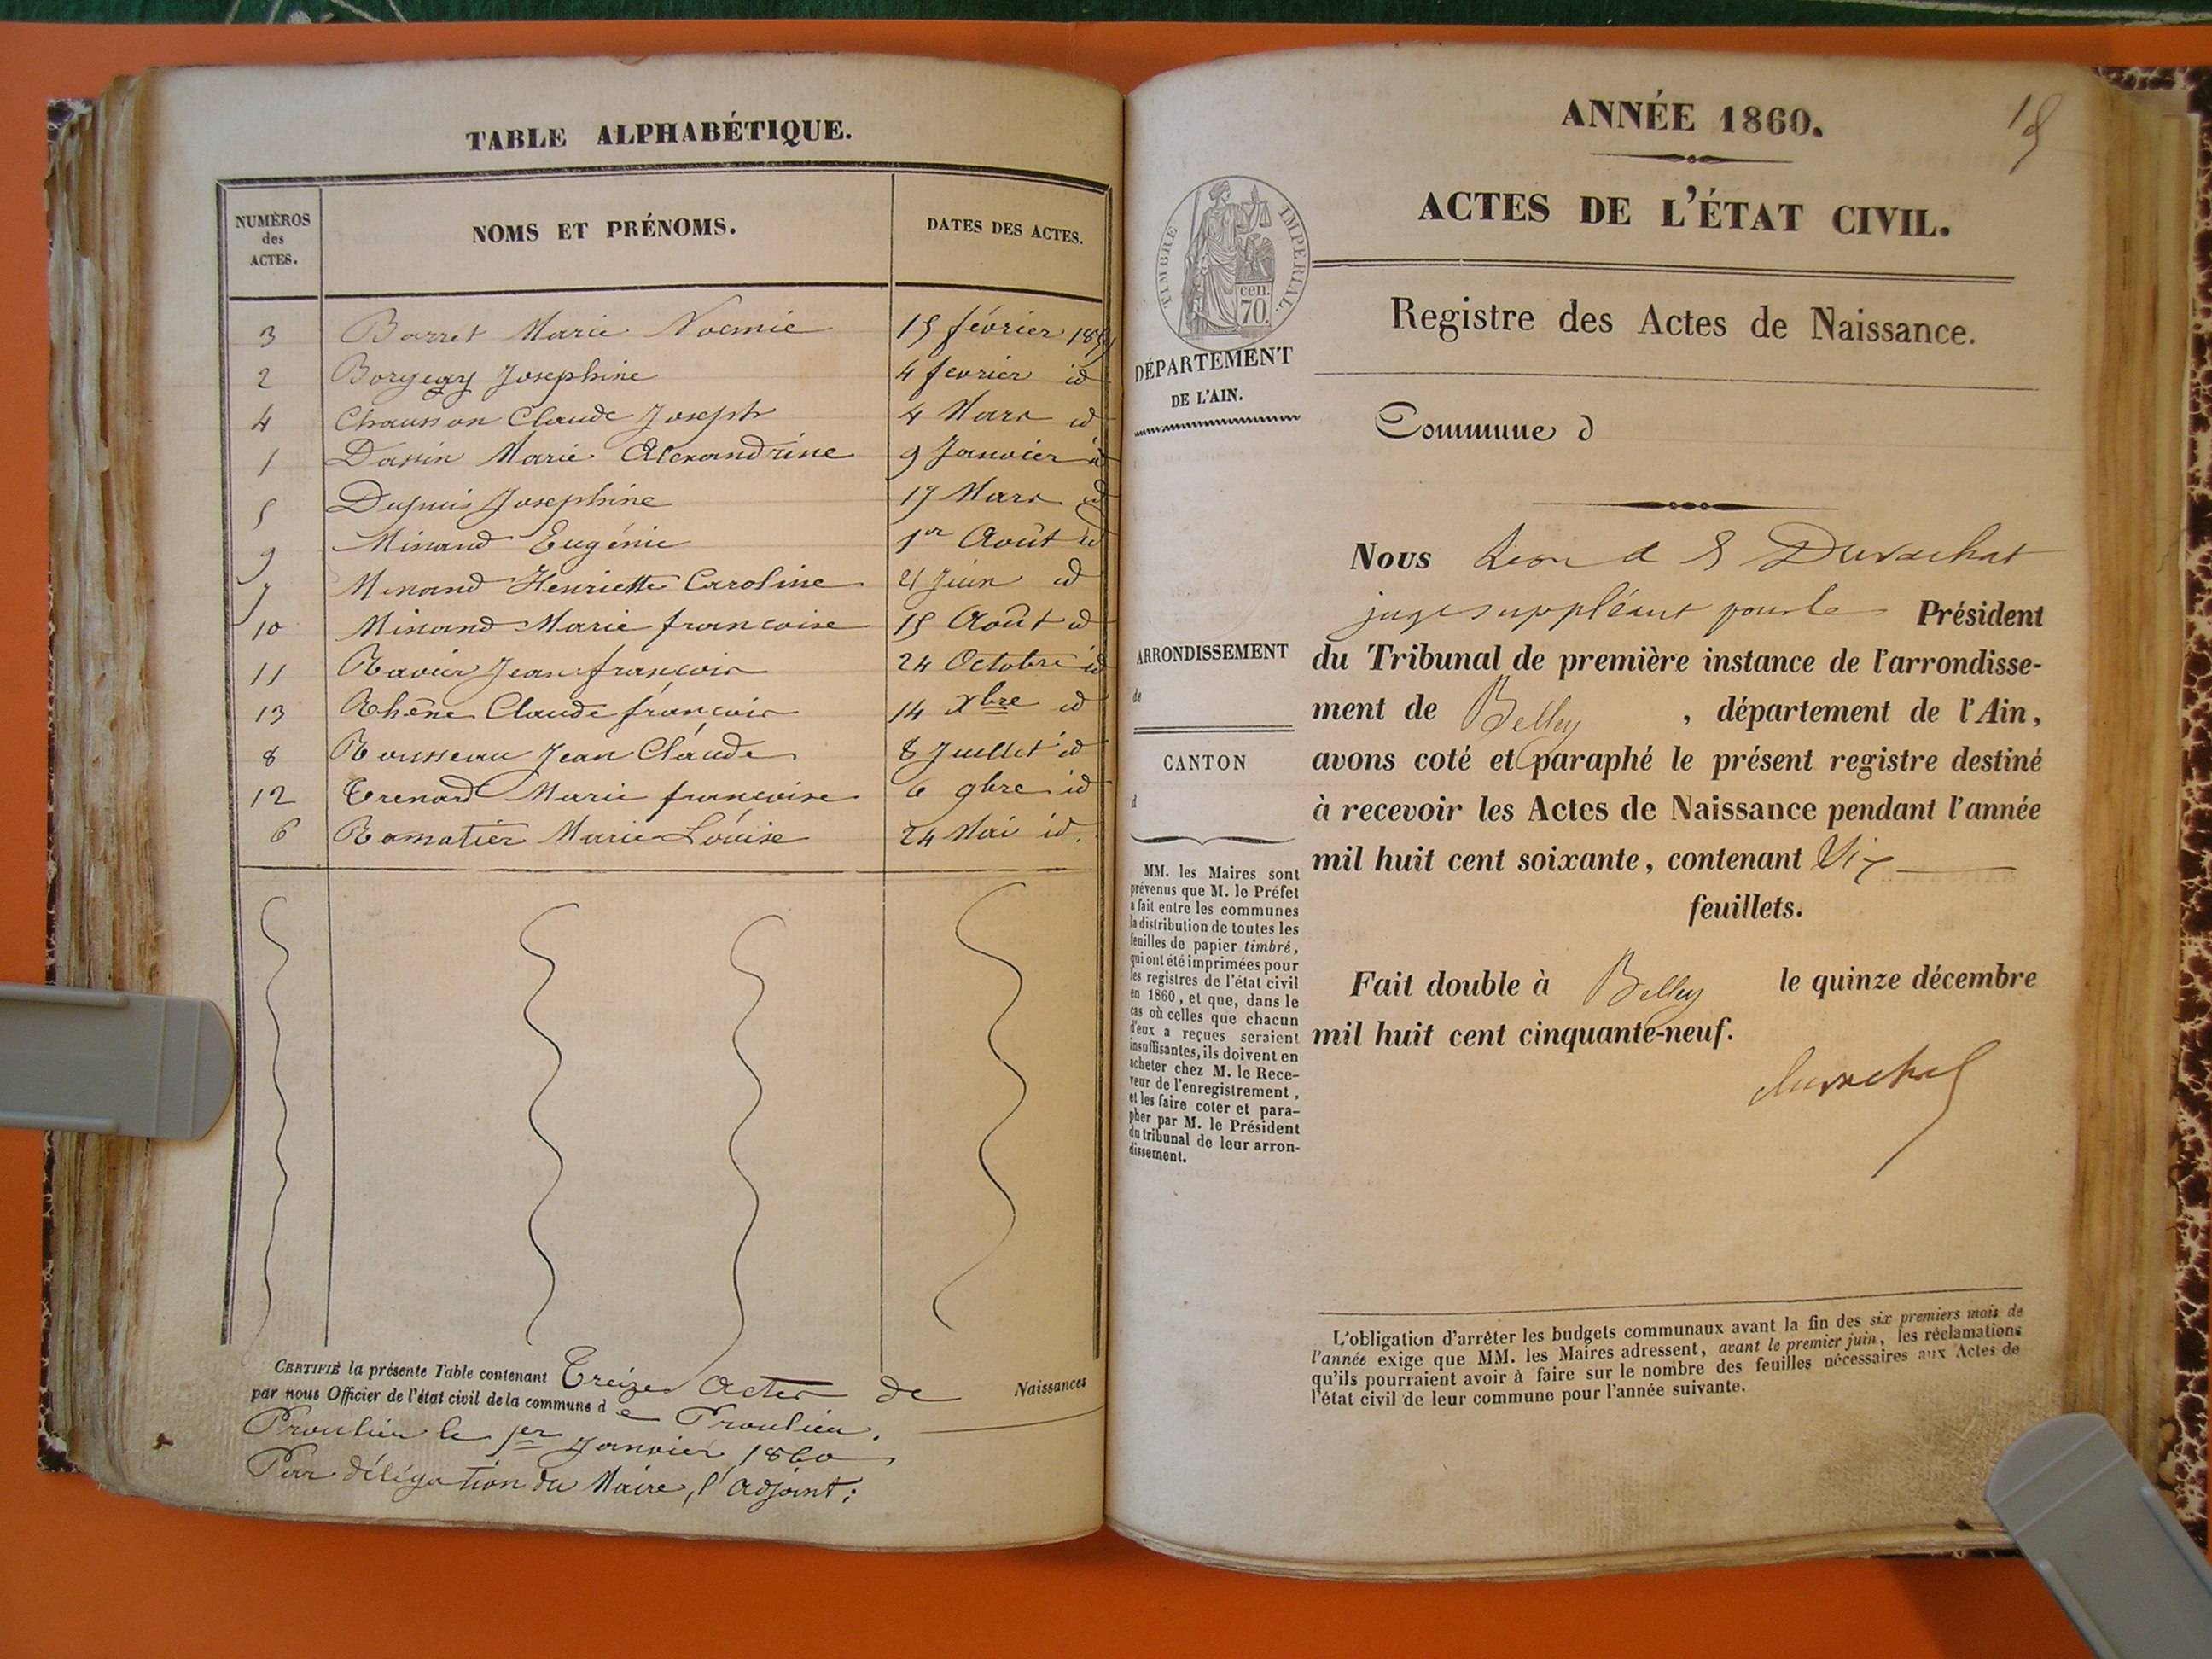 TABLE ALPHABÉTIQUE.
NUMÉROS des ACTES.
NOMS ET PRÉNOMS.
DATES DES ACTES.
3 Barret Marie Noemie 15 février 1859
2 Borgey Josephine 4 fevrier id
4 Chausson Claude Joseph 4 Mars id
1 Dassin Marie Alexandrine 9 Janvier id
5 Dupuis Josephine 17 Mars id
9 Minand Eugénie 1er Août id
7 Minand Henriette Caroline 21 Juin id
10 Minand Marie francoise 15 Août id
11 Ravier Jean françois 24 Octobre id
13 Rhêne Claude françois 14 Xbre id
8 Rousseau Jean Claude 8 Juillet id
12 Trenard Marie françoise 6 9bre id
6 Ramatier Marie Louise 24 Mai id.
CERTIFIÉ la présente Table contenant Treize Actes de Naissances
par nous Officier de l'état civil de la commune de Proulieu.
Proulieu le 1er Janvier 1860
Par délégation du Maire, l'adjoint:
18
ANNÉE 1860.
ACTES DE L'ÉTAT CIVIL.
TIMBRE IMPERIAL.
cen.
70.
DÉPARTEMENT
DE L'AIN.
Registre des Actes de Naissance.
Commune d
Nous Duvachat
juge suppléant pour le Président
du Tribunal de première instance de l'arrondisse-
ment de Belley, département de l'Ain,
avons coté et paraphé le présent registre destiné
à recevoir les Actes de Naissance pendant l'année
mil huit cent soixante, contenant Six
feuillets.
Fait double à Belley le quinze décembre
mil huit cent cinquante-neuf.
duvachat
ARRONDISSEMENT
de
CANTON
d
MM. les Maires sont
prévenus que M. le Préfet
a fait entre les communes
la distribution de toutes les
feuilles de papier timbré,
qui ont été imprimées pour
les registres de l'état civil
en 1860, et que, dans le
cas où celles que chacun
d'eux a reçues seraient
insuffisantes, ils doivent en
acheter chez M. le Rece-
veur de l'enregistrement,
et les faire coter et para-
pher par M. le Président
du tribunal de leur arron-
dissement.
L'obligation d'arrêter les budgets communaux avant la fin des six premiers mois de
l'année exige que MM. les Maires adressent, avant le premier juin, les réclamations
qu'ils pourraient avoir à faire sur le nombre des feuilles nécessaires aux Actes de
l'état civil de leur commune pour l'année suivante.